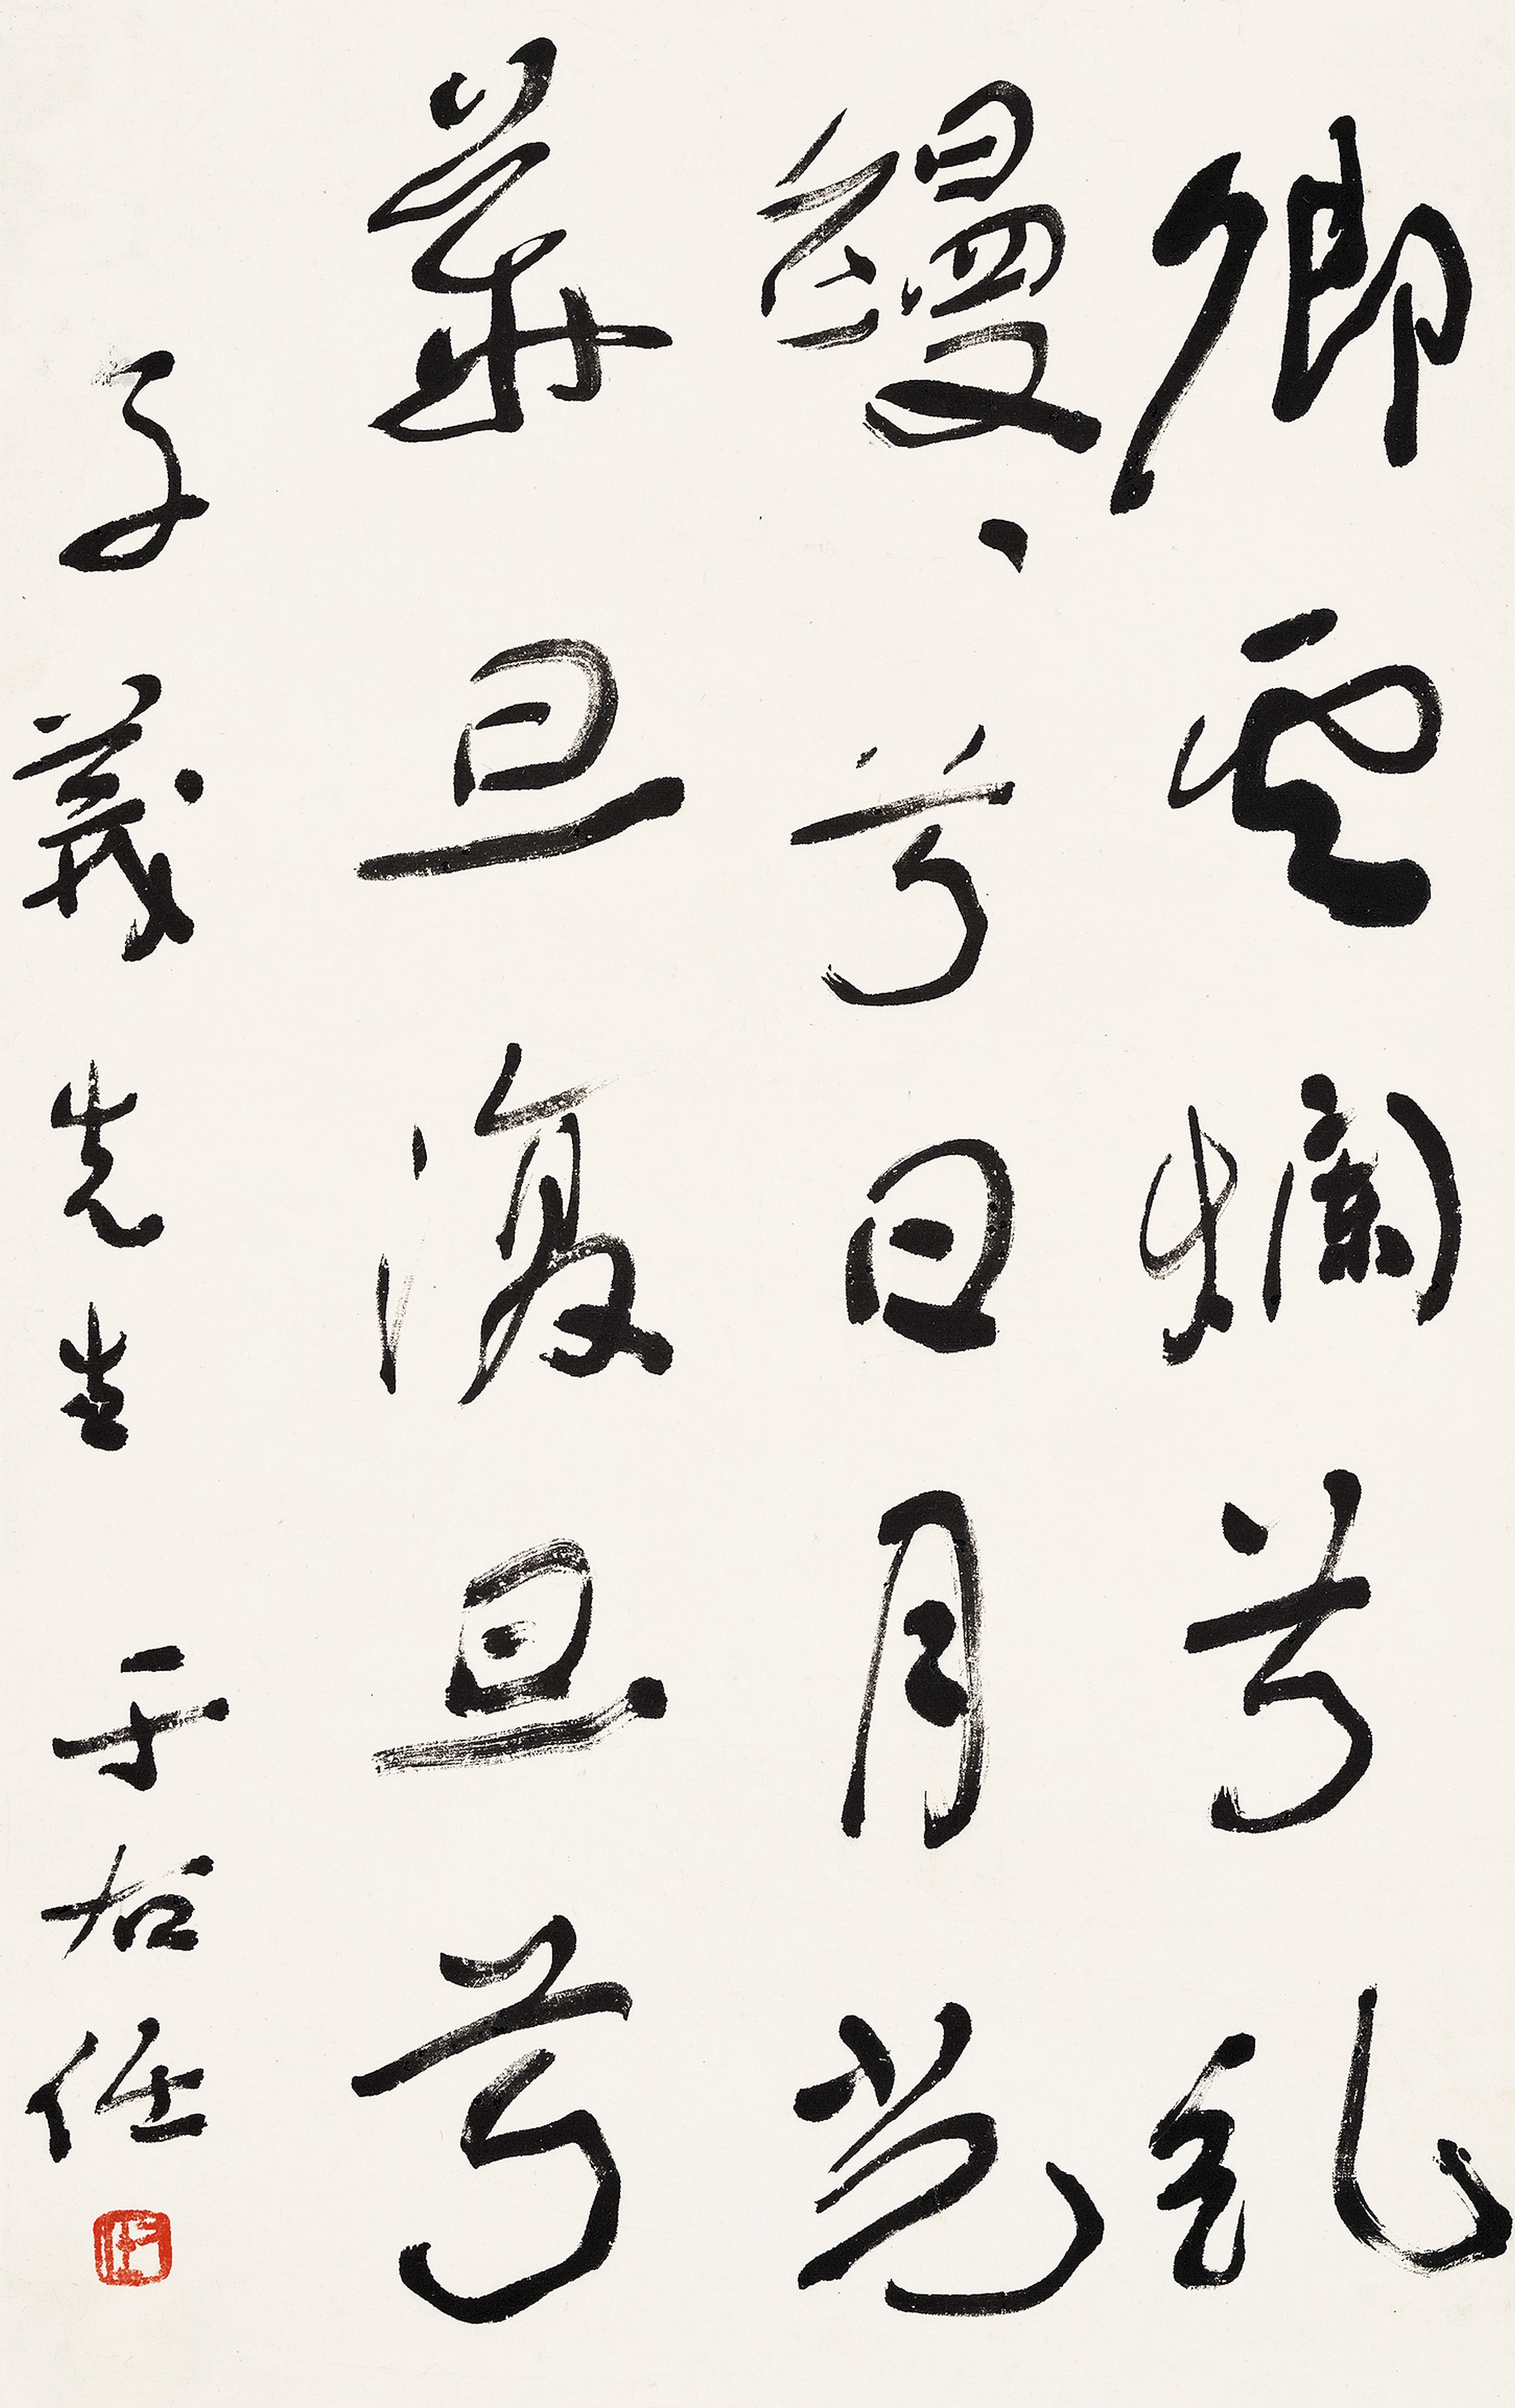 卿雲爛兮糺
縵々兮日月光
華旦復旦兮
子義先生 于右任